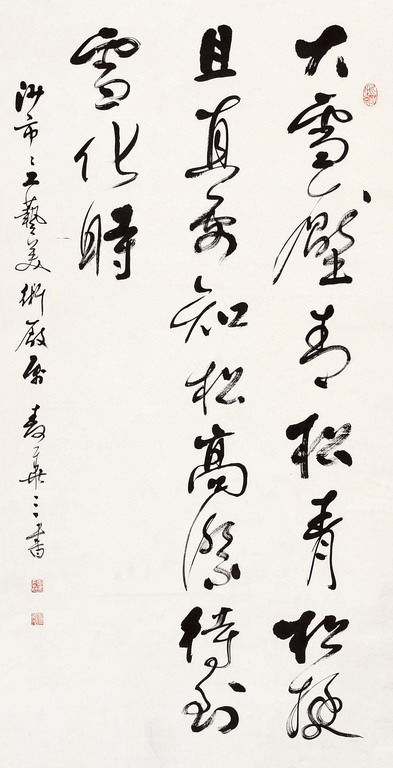 大雪壓青松青松挺
且直要知松高潔待到
雪化時
沙市〻工藝美術廠 書